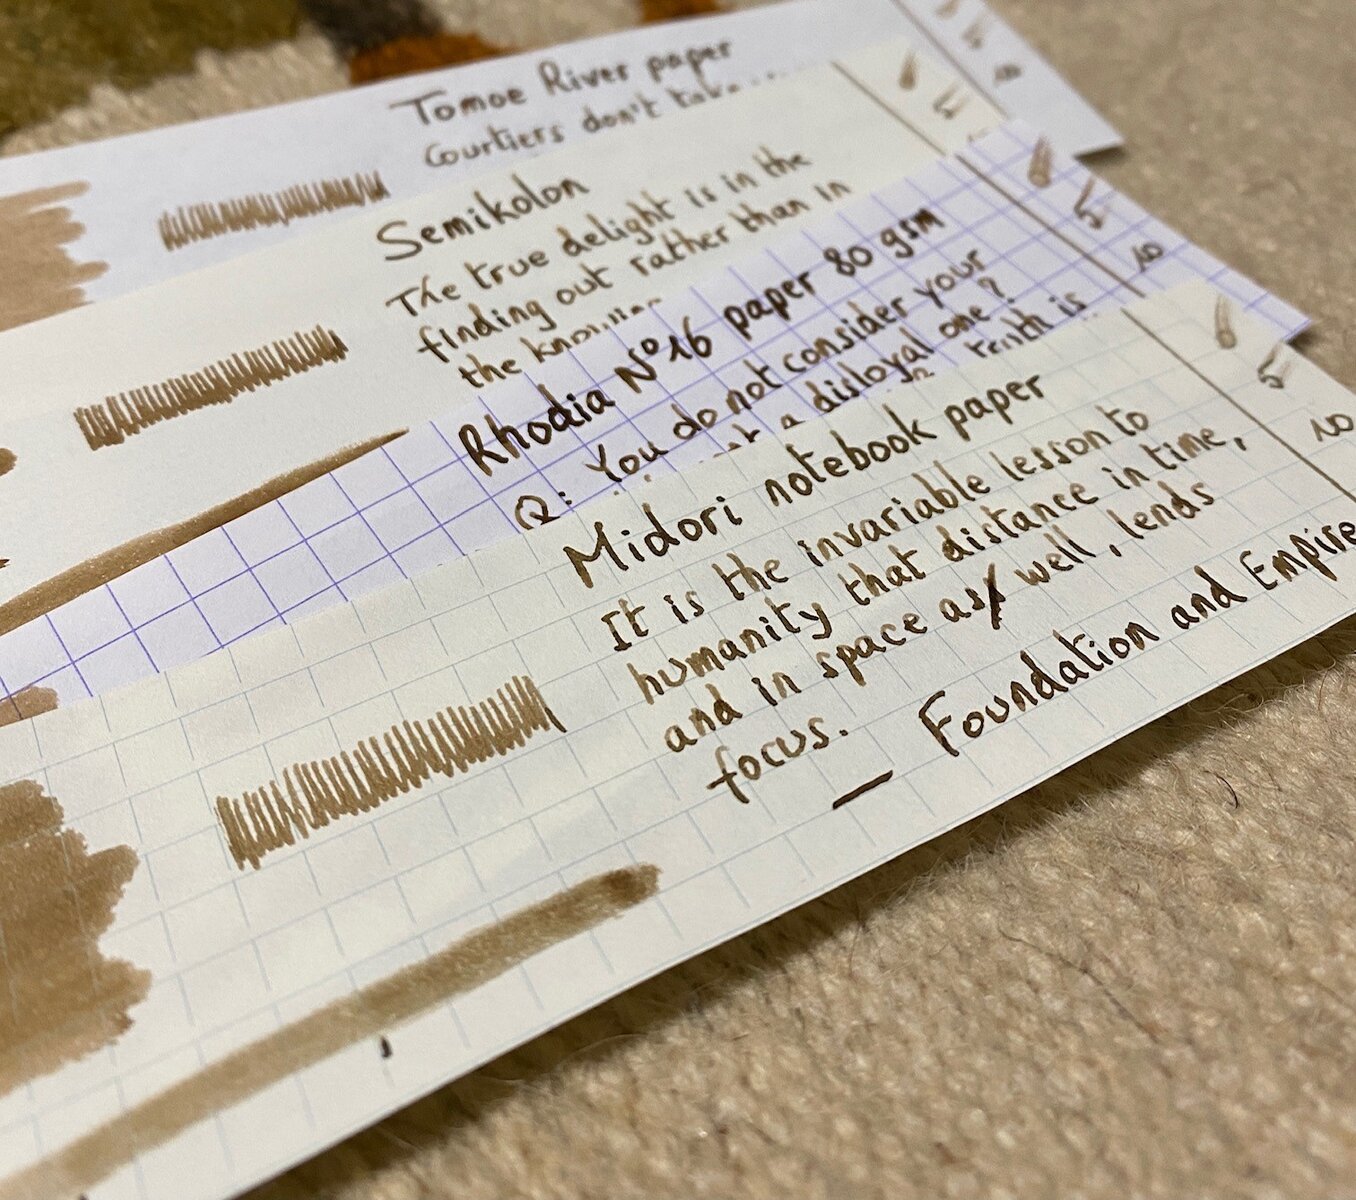 Tomoe River paper
Courtiers don't take
10
Semikolon
The true delight is in the
finding out rather than in
the knowing
Rhodia N°16 paper 80 gsm
Q: You do not consider your
a disloyal one?
truth is
5
10
Midori notebook paper
It is the invariable lesson to
humanity that distance in time,
and in space as well, lends
focus.
— Foundation and Empire
5
10